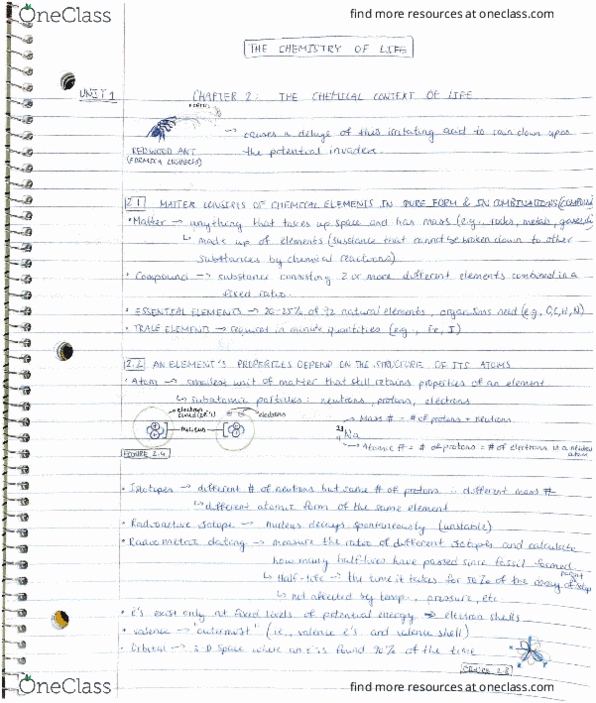 OneClass
find more resources at oneclass.com
THE CHEMISTRY OF LIFE
UNIT 1
CHAPTER 2: THE CHEMICAL CONTEXT OF LIFE
→ causes a deluge of this irritating acid to rain down upon
the potential invaders
REDWOOD ANT
(FORMICA
2.1 MATTER CONSISTS OF CHEMICAL ELEMENTS IN PURE FORM & IN COMBINATIONS
• Matter → anything that takes up space and has mass (e.g., rocks, metals, gases)
↳ made up of elements (substance that cannot be broken down to other
substances by chemical reactions)
• Compound → substance consisting 2 or more different elements combined in a
fixed ratio
• ESSENTIAL ELEMENTS → 20-25% of 92 natural elements, organisms need (e.g. O,C,H,N)
• TRACE ELEMENTS → required in minute quantities (e.g., Fe, I)
2.2 AN ELEMENT'S PROPERTIES DEPEND ON THE STRUCTURE OF ITS ATOMS
• Atom → smallest unit of matter that still retains properties of an element
↳ subatomic particles: neutrons, protons, electrons
electron
electrons
nucleus
→ Mass # = # of protons + neutrons
Na
→ Atomic # = # of protons = # of electrons in a neutral
atom
FIGURE 2.4
• Isotopes → different # of neutrons but same # of protons ∴ different mass #
↳ different atomic form of the same element
• Radioactive isotope → nucleus decays spontaneously (unstable)
• Radiometric dating → measure the ratio of different isotopes and calculate
how many half-lives have passed since fossil formed
↳ Half-life → the time it takes for 50% of the parent isotop
↳ not affected by temp., pressure, etc
• e's exist only at fixed levels of potential energy → electron shells
• valence → "outermost" (i.e., valence e's and valence shell)
• Orbital → 3-D space where an e is found 90% of the time
OneClass
find more resources at oneclass.com